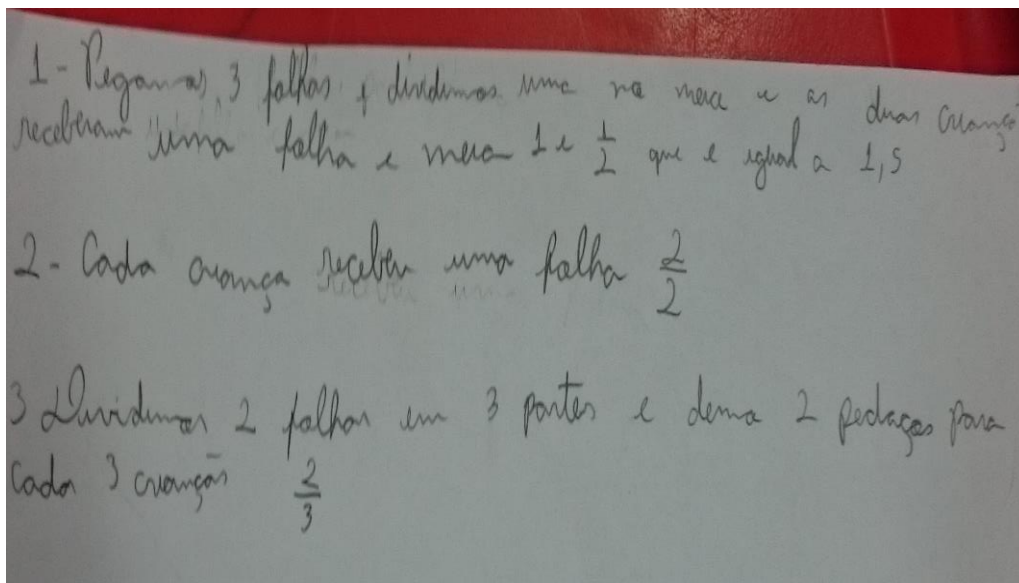 1- Pegamos 3 folhas e dividimos uma na meia e as duas crianças
receberam uma folha e meia 1 e 1/2 que e igual a 1,5
2- Cada criança recebeu uma folha 2/2
3 Dividimos 2 folhas em 3 partes e demo 2 pedaços para
cada 3 crianças 2/3